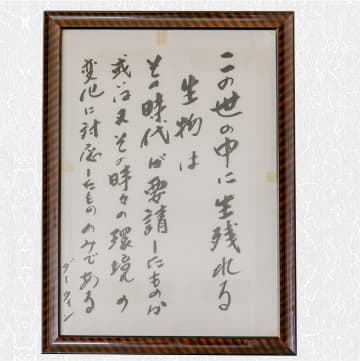 この世の中に生残れる
生物は
その時代が要請したものか
或は又その時々の環境の
変化に対応したもののみである
ダーウィン